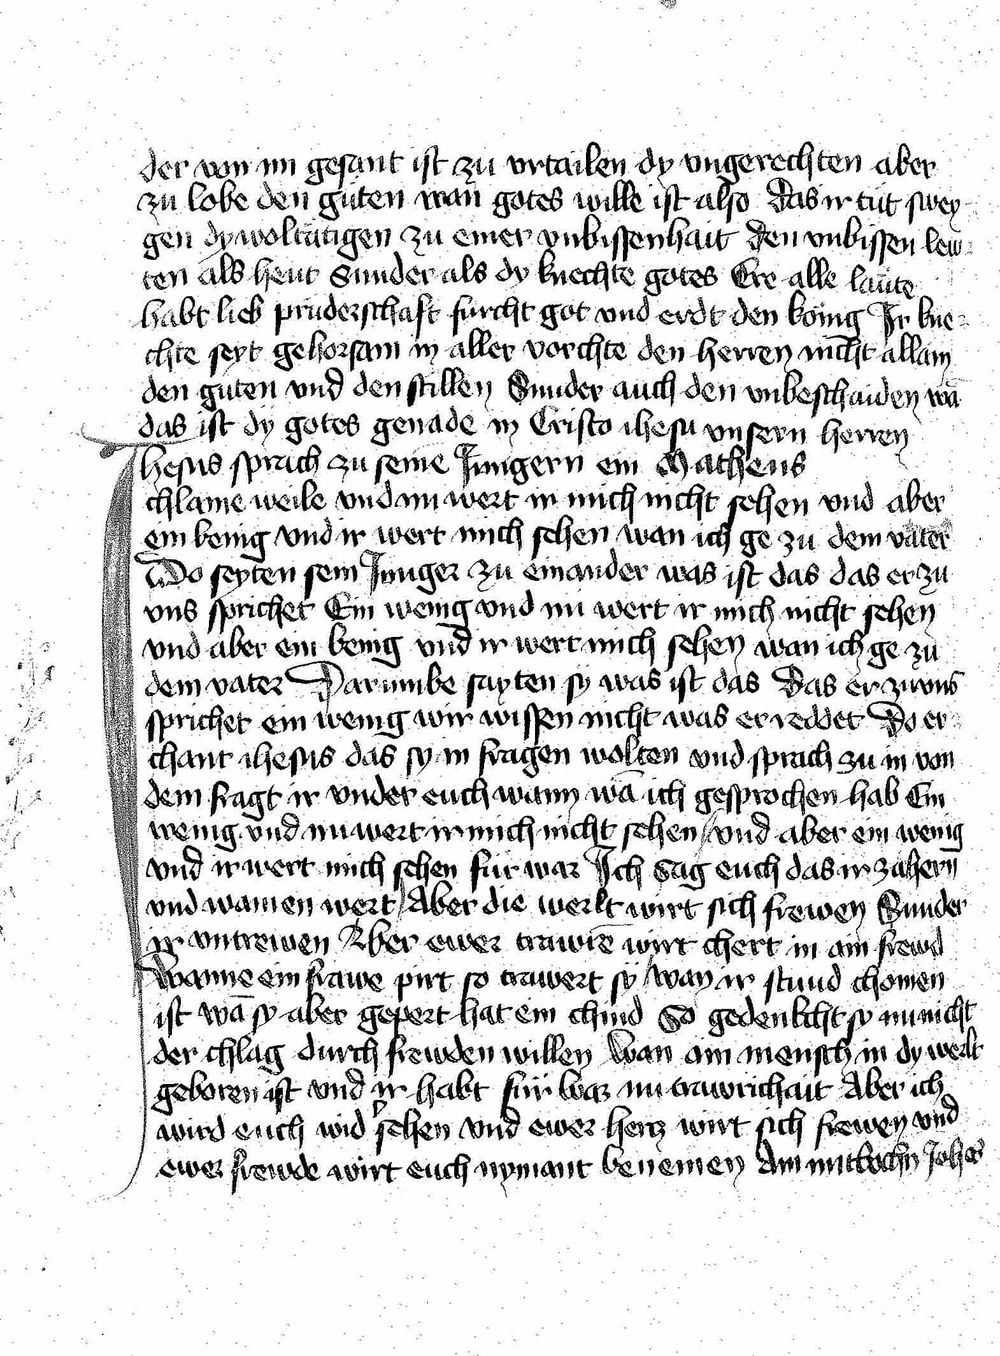 der von im gesant ist zu vrtailen dy vngerechten aber
zu lobe den guten wan̄ gotes wille ist also das ir tut swey-
gen dy woltatigen zu einer vnbissenhait den vnbissen lew-
ten als heut Sunder als dy knechte gotes Ere alle laute
habt lieb pruderschaft furcht got vnd erdt den konig Ir kne-
chte seyt gehorsam in aller vorchte den herren nicht allain
den guten vnd den stillen Sunder auch den vnbeschaiden wā
das ist dy gotes genade in Cristo ihesu vnsern herren
Ihesus sprach zu seine Jungern ein Matheus
chlaine weile vnd nu wert ir mich nicht sehen vnd aber
ein benig vnd ir wert mich sehen wan ich ge zu dem vater
Do seyten sein Junger zu einander was ist das das er zu
vns sprichet Ein wenig vnd nu wert ir mich nicht sehen
vnd aber ein benig vnd ir wert mich sehen wan ich ge zu
dem vater Darumbe sayten sy was ist das das er zu vns
sprichet ein wenig wir wissen nicht was er reddet Do er-
chant ihesus das sy in fragen wolten vnd sprach zu in von
dem fragt ir vnder euch wann wā ich gesprochen hab Ein
wenig vnd nu wert ir mich nicht sehen / vnd aber ein wenig
vnd ir wert mich sehen fur war Ich sag euch das ir zahern
vnd wainen wert / Aber die werlt wirt sich frewen Sunder
ir vntrewen Aber ewer trawrē wirt chert in ain frewd
wanne ein frawe pirt so trawert sy / wan ir stund chomen
ist wā sy aber gepert hat ein chind So gedenkcht sy nu nicht
der chlag durch frewden willen Wan ain mensch in dy werlt
geboren ist vnd ir habt fur war nu trawrichait Aber ich
wird euch wid' sehen vnd ewer hercz wirt sich frewen vnd
ewer frewde wirt euch nymant benemen Am mitbochn Johes